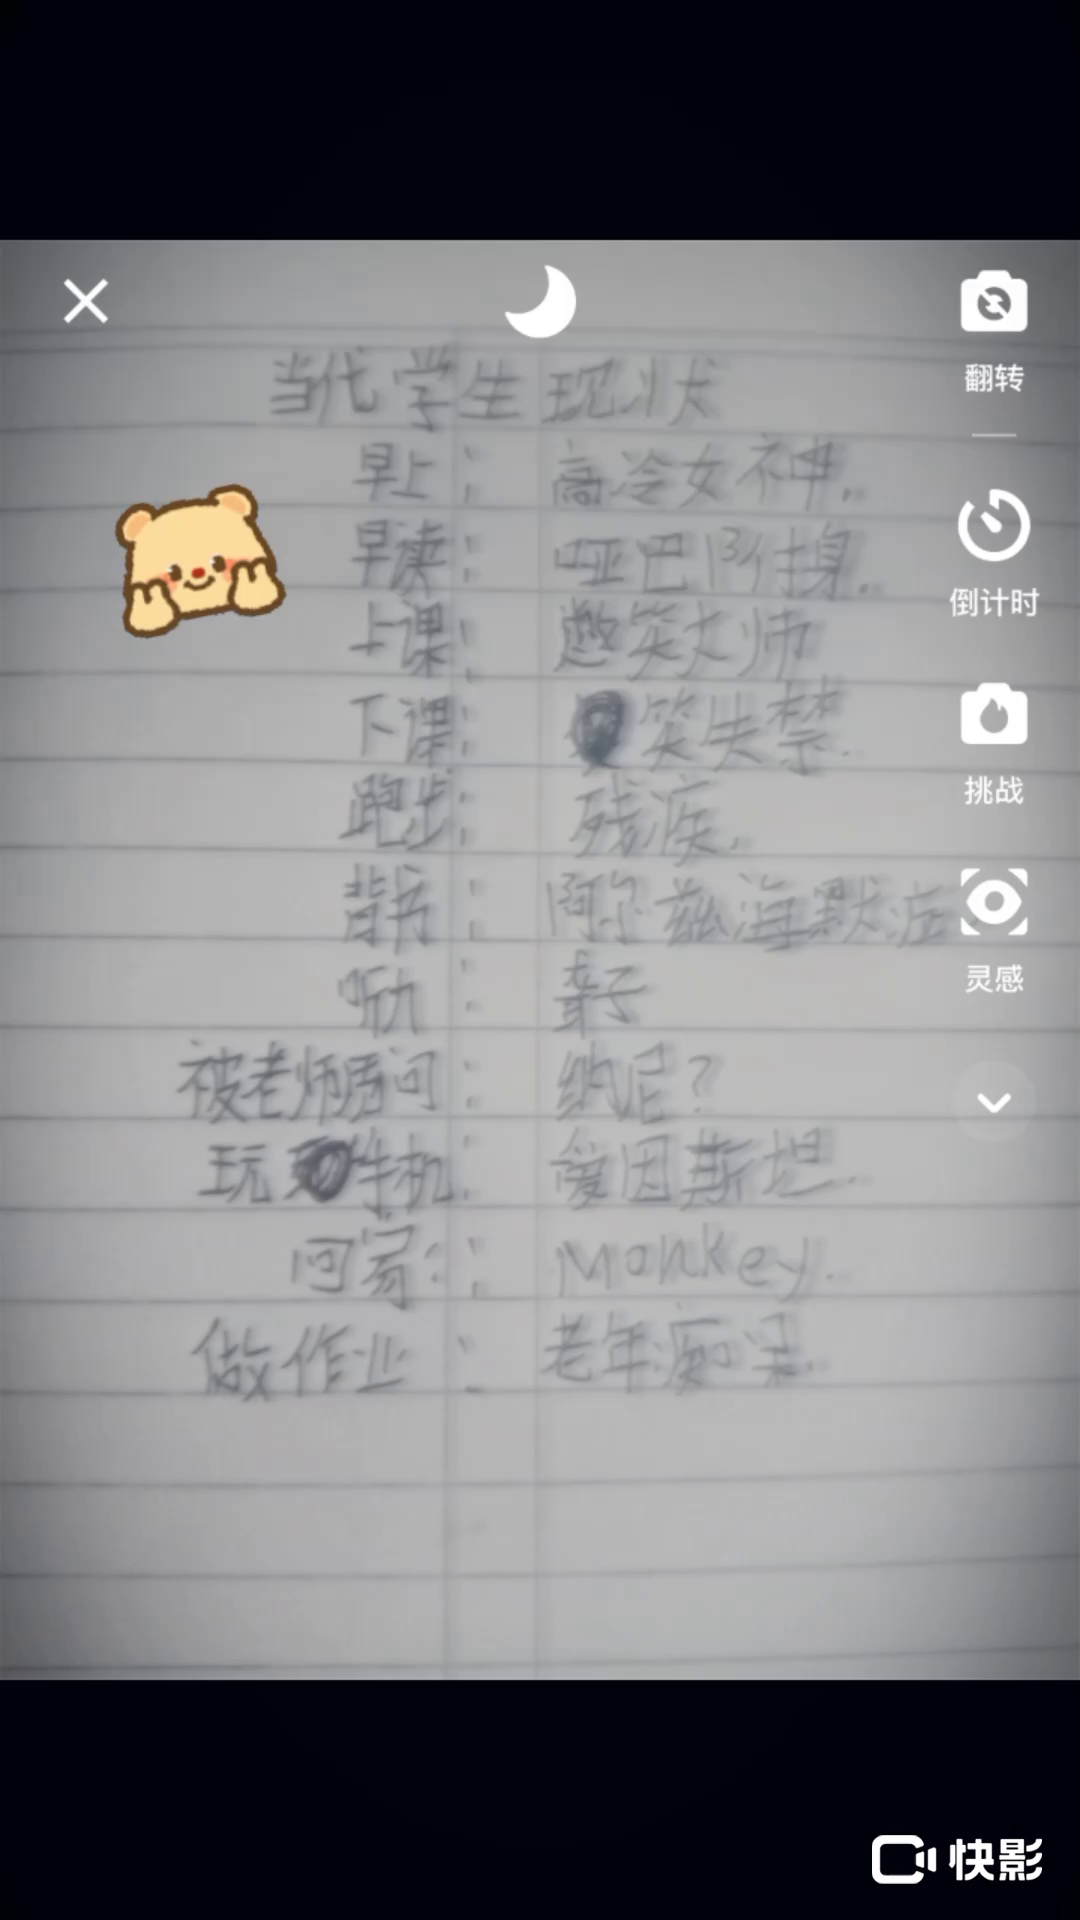 当代学生现状
早上: 高冷女神.
早读: 哑巴附身.
上课: 憋笑大师
下课: 笑失禁.
跑步: 残疾.
背书: 阿尔兹海默症
听力: 聋子
被老师质问: 纳尼?
玩手机: 爱因斯坦.
回家: Monkey.
做作业: 老年痴呆.
翻转
倒计时
挑战
灵感
快影